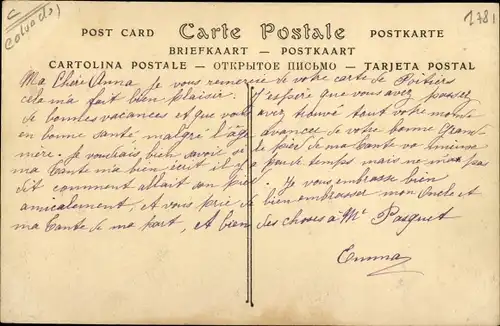 C
Calvados)
1781
POST CARD Carte Postale POSTKARTE
BRIEFKAART — POSTKAART
CARTOLINA POSTALE — ОТКРЫТОЕ ПИСЬМО — TARJETA POSTAL
Ma Chère Anna Je vous remercie de votre carte de Poitiers
cela ma fait bien plaisir. J'espère que vous avez passez
de bonnes vacances et que vous avez trouvé tout votre monde
en bonne santé malgré l'âge avancée de votre bonne Grand
mère. Je voudrais bien savoir si le pied de ma Tante va mieux
ma Tante ma bien écrit il y a peu de temps mais ne m'a pas
dit comment allait son pied. Je vous embrasse bien
amicalement, et vous prie de bien embrasser mon Oncle et
ma Tante de ma part, et bien des choses à Mr Pasquet
Emma